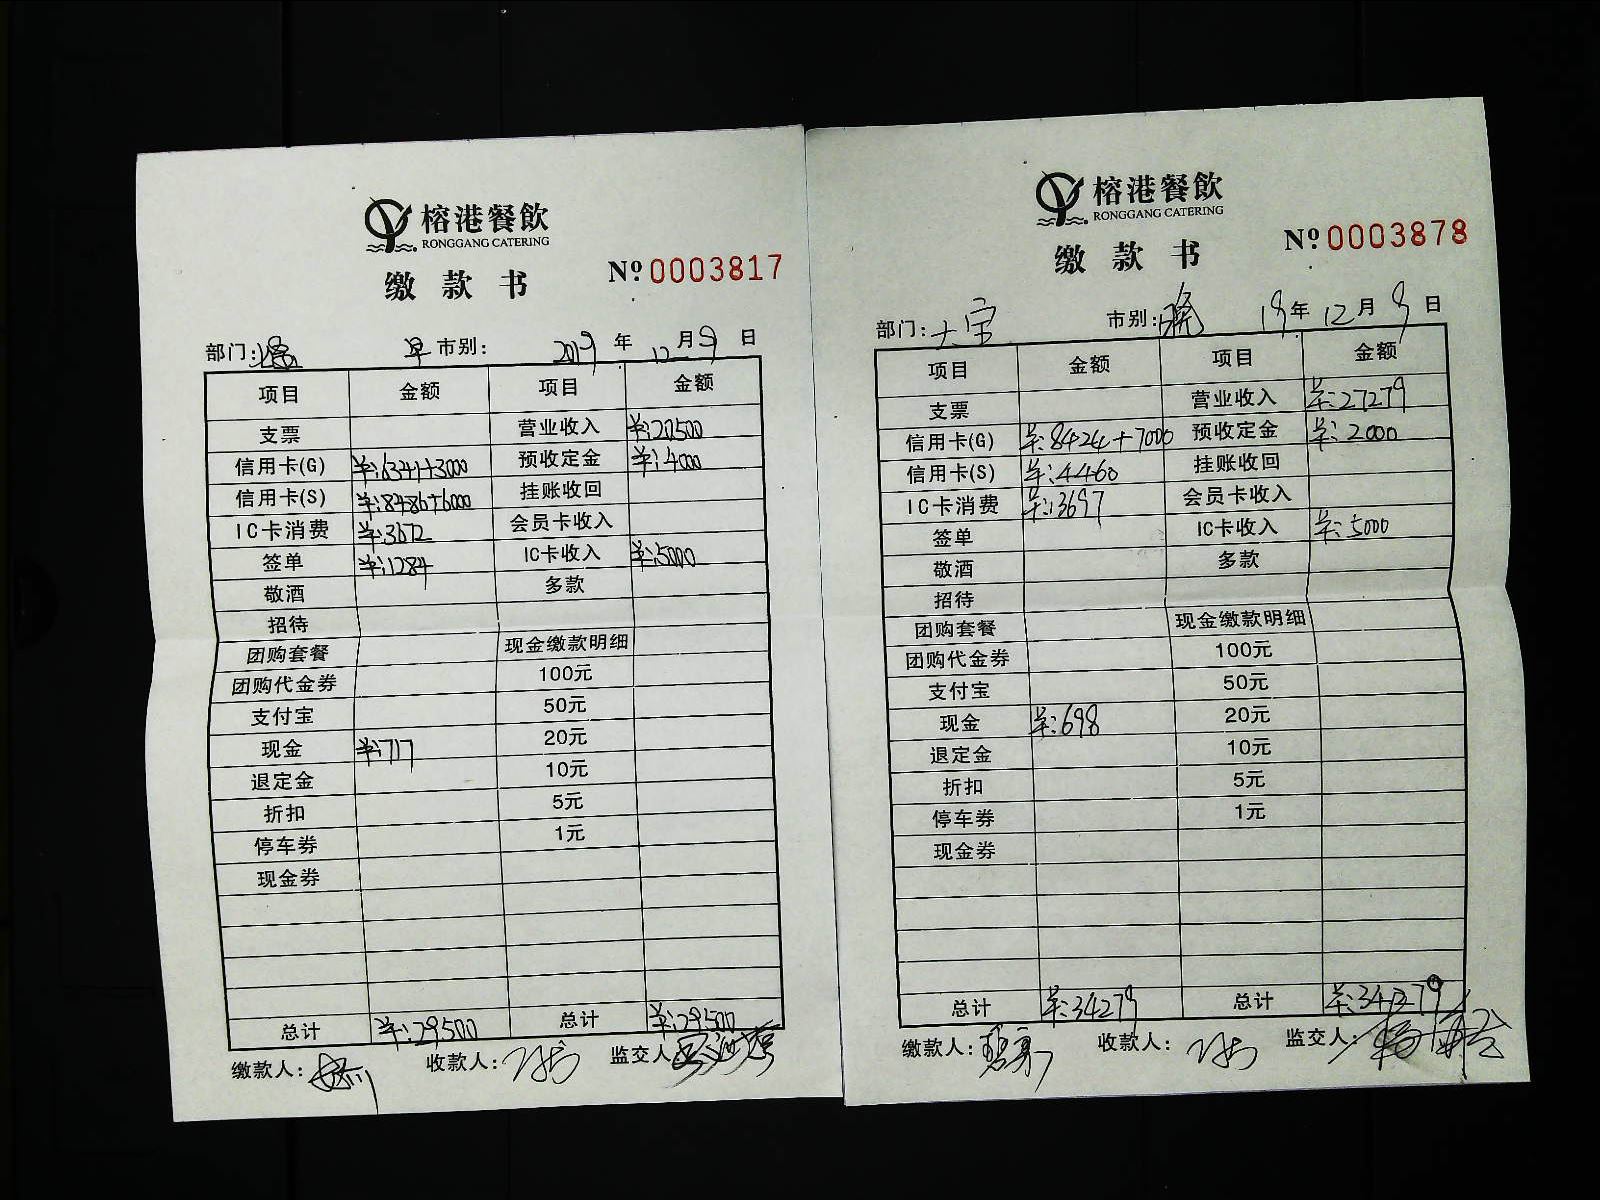 榕港餐飲
RONGGANG CATERING
缴款书
Nº 0003817
部门: 早市别: 2019年12月9日
项目 金额 项目 金额
支票 营业收入 ¥:20500
信用卡(G) ¥:6341+3000 预收定金 ¥:4000
信用卡(S) ¥:8486+6000 挂账收回
IC卡消费 ¥:3672 会员卡收入
签单 ¥:1284 IC卡收入 ¥:5000
敬酒 多款
招待
团购套餐 现金缴款明细
团购代金券 100元
支付宝 50元
现金 ¥:717 20元
退定金 10元
折扣 5元
停车券 1元
现金券
总计 ¥:29500 总计 ¥:29500
缴款人: 收款人: 监交人:
榕港餐飲
RONGGANG CATERING
缴款书
Nº 0003878
部门:大宗 市别:晚 19年12月9日
项目 金额 项目 金额
支票 营业收入 ¥:27279
信用卡(G) ¥:8424+7000 预收定金 ¥:2000
信用卡(S) ¥:4460 挂账收回
IC卡消费 ¥:13697 会员卡收入
签单 IC卡收入 ¥:5000
敬酒 多款
招待
团购套餐 现金缴款明细
团购代金券 100元
支付宝 50元
现金 ¥:698 20元
退定金 10元
折扣 5元
停车券 1元
现金券
总计 ¥:34279 总计 ¥:34279
缴款人: 收款人: 监交人: